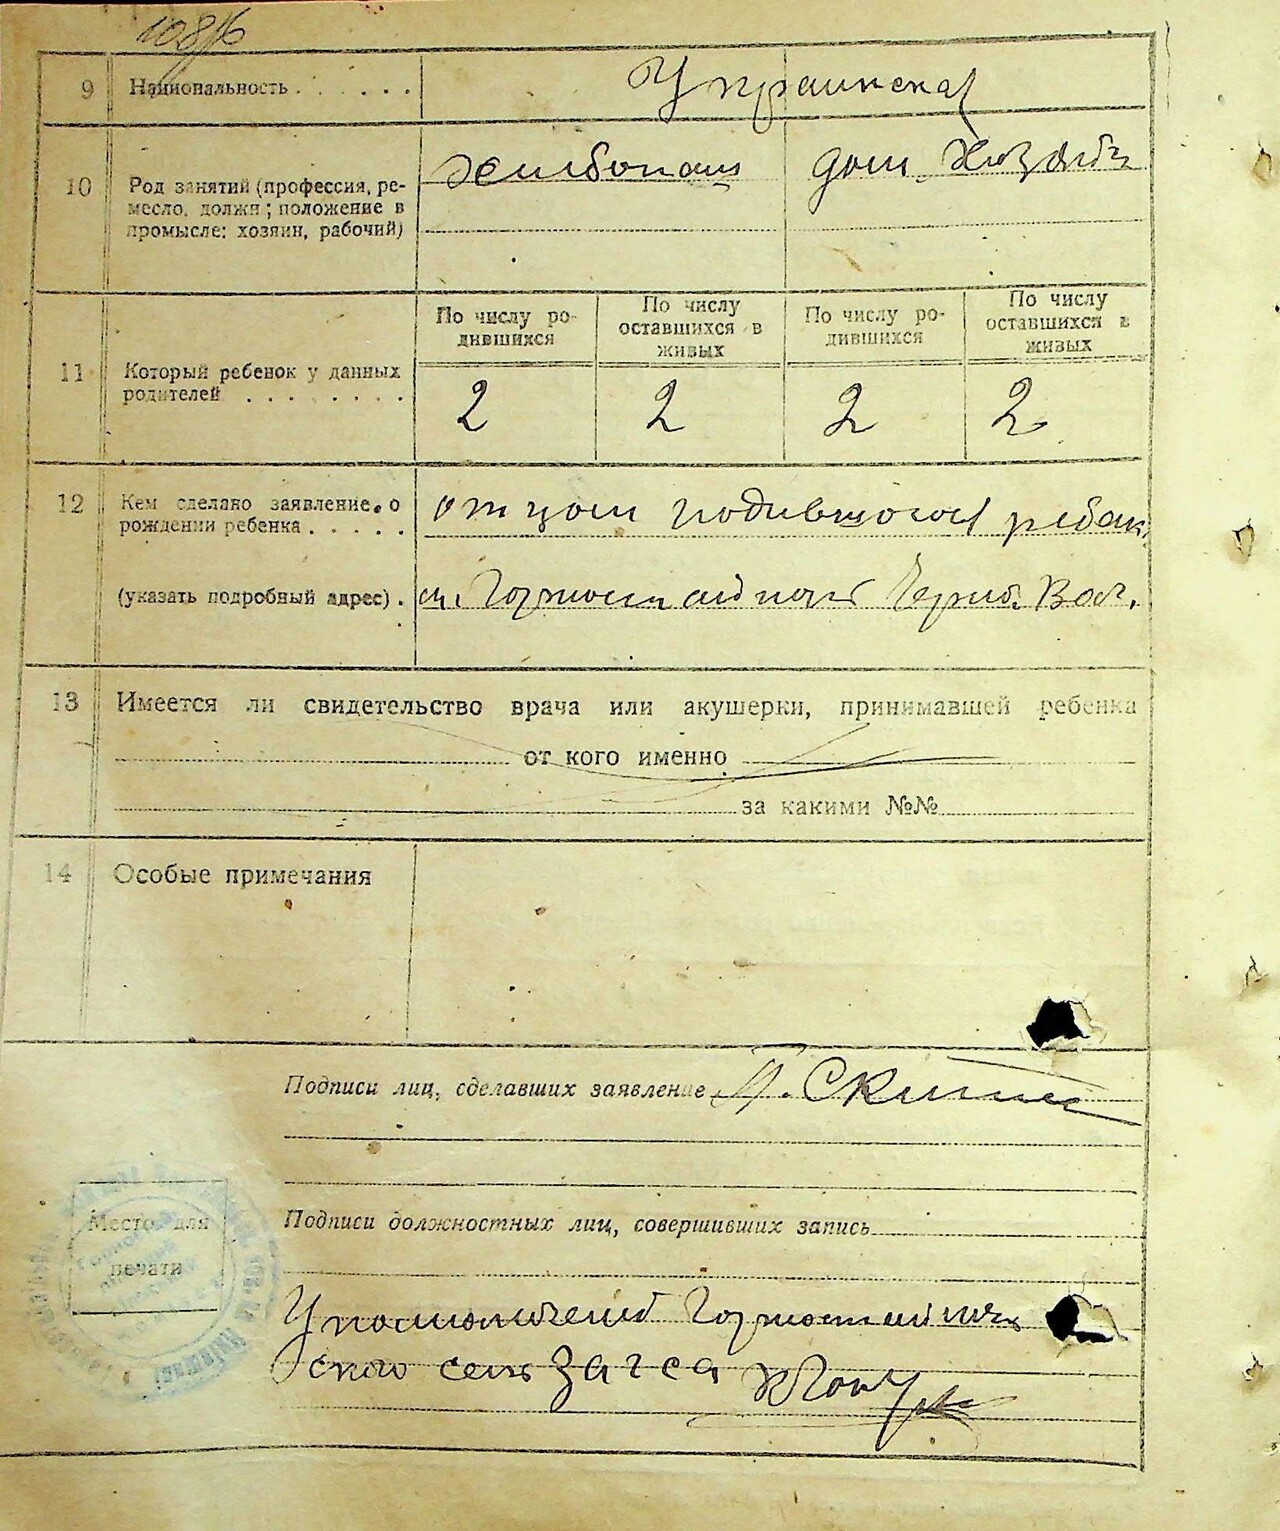 9 Национальность . . . . . . Украинская
10 Род занятий (профессия, ре-
месло, должн; положение в
промысле: хозяин, рабочий)
хлебопаш дом. хозяйка
По числу ро-
дившихся
По числу
оставшихся в
живых
По числу ро-
дившихся
По числу
оставшихся в
живых
11 Который ребенок у данных
родителей . . . . . . . .
2 2 2 2
12 Кем сделано заявление о
рождении ребенка . . . . .
отцом родившогося ребенк
(указать подробный адрес) .
м. Горностайполь Черноб. Вол.
13 Имеется ли свидетельство врача или акушерки, принимавшей ребенка
от кого именно
за какими №№
14 Особые примечания
Подписи лиц, сделавших заявление
Подписи должностных лиц, совершивших запись
Место для
печати
Уполномочений Горностайполь
ского сель Загса